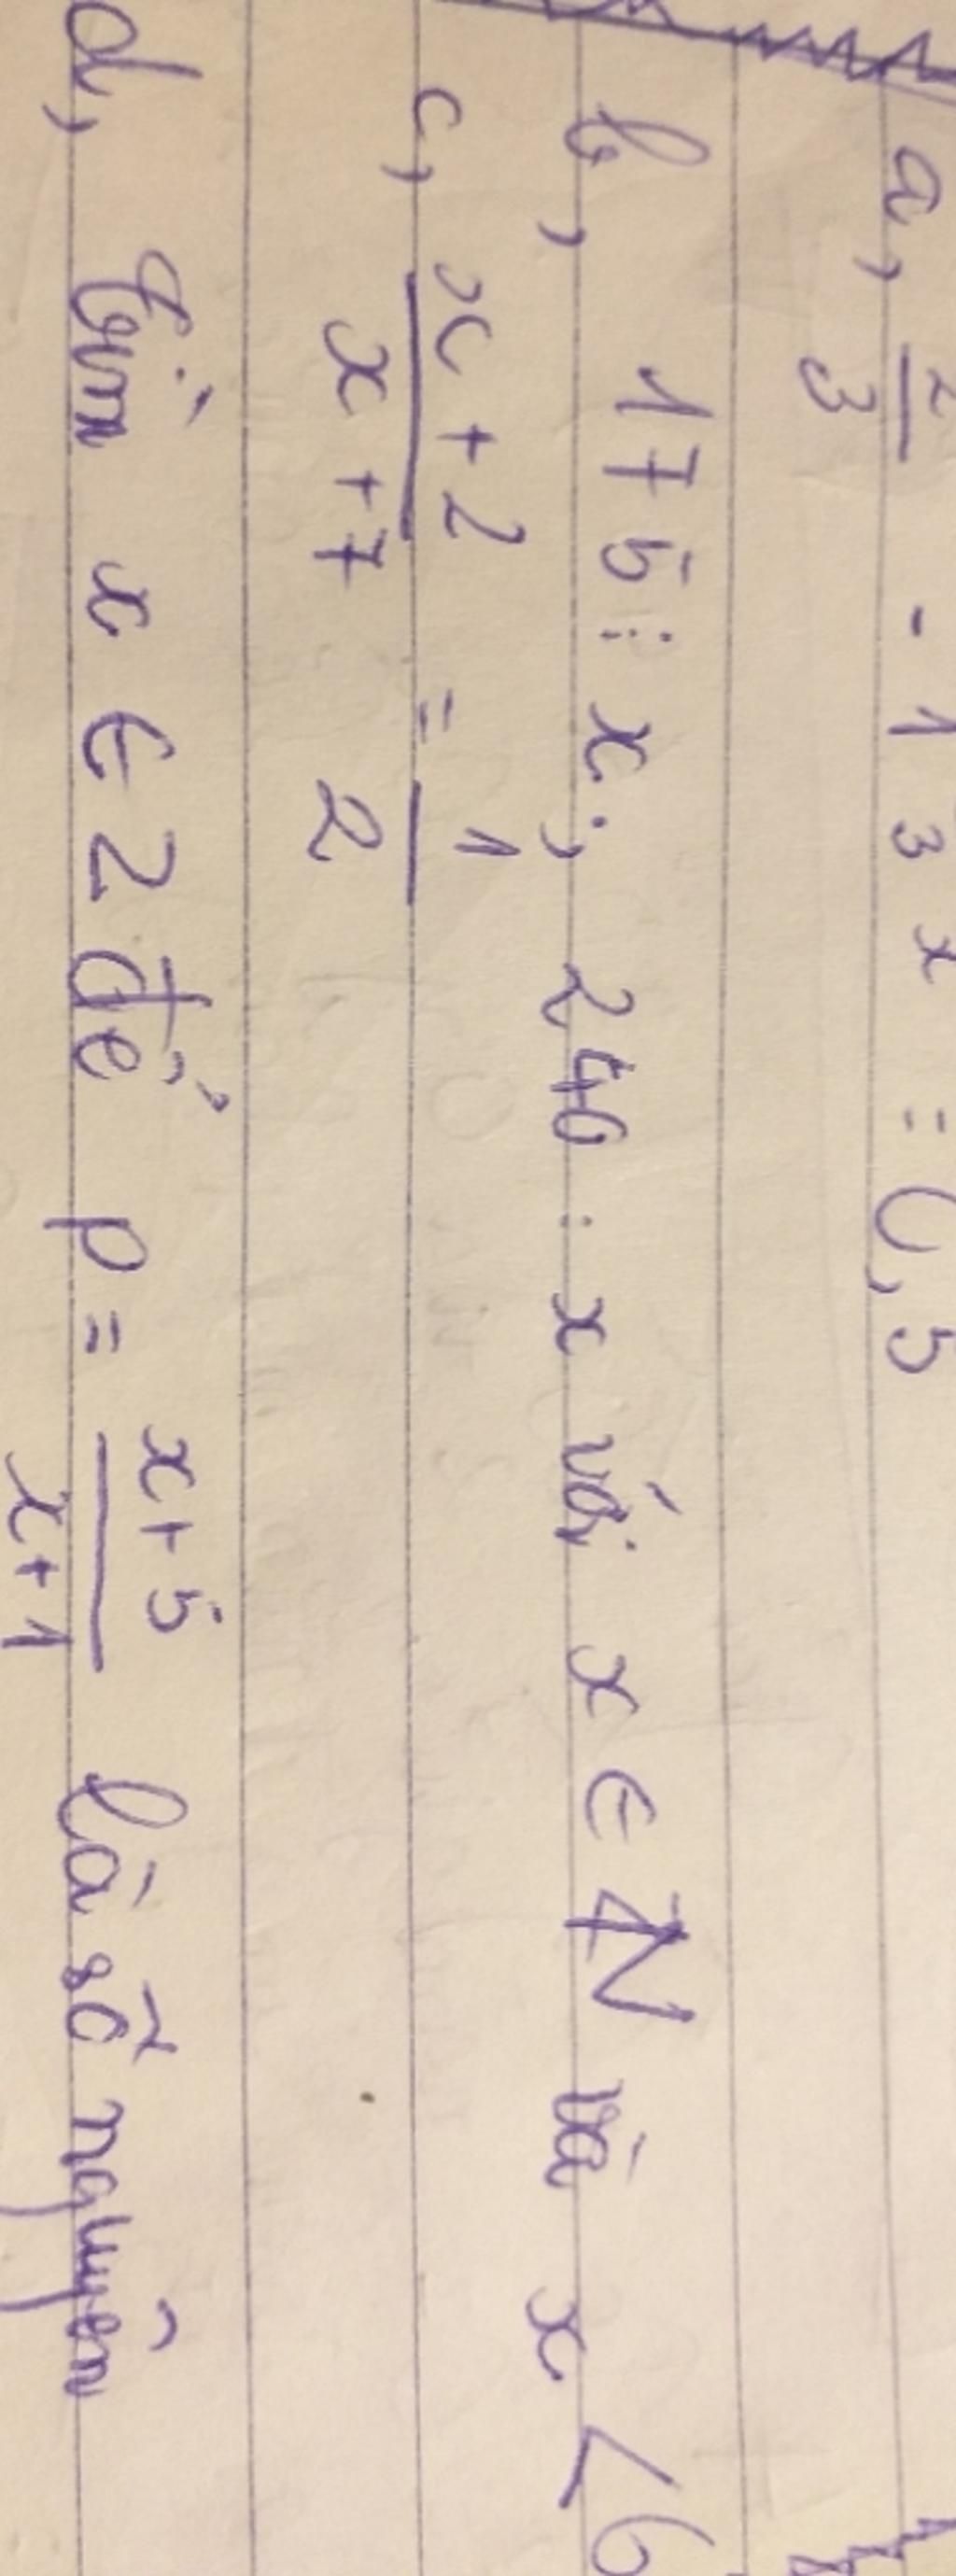 a, 2/3 - 1 3 x = 0,5
b, 175 ⋮ x ; 240 : x với x ∈ N và x < 6
c, x + 2 / x + 7 = 1 / 2
d, tìm x ∈ Z để p = x + 5 / x + 1 là số nguyên